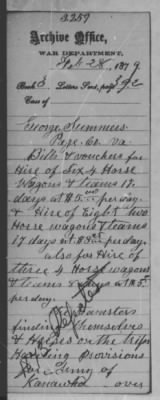 3259
Archive Office,
WAR DEPARTMENT,
Feb 28, 1879
Book 8. Letters Sent, page 392
Case of
George Summers
Page Co Va
Bills & vouchers for
Hire of Six 4 Horse
Wagons & Teams 12
days at $5 per day.
& Hire of Eight two
Horse wagons & Teams
17 days at per day.
also for Hire of
three 4 Horse wagons
& Teams days at $5.
per day.
Teamsters
finding Themselves
& Horses on the trips
Hauling Provisions
for Army of
Kanawha over